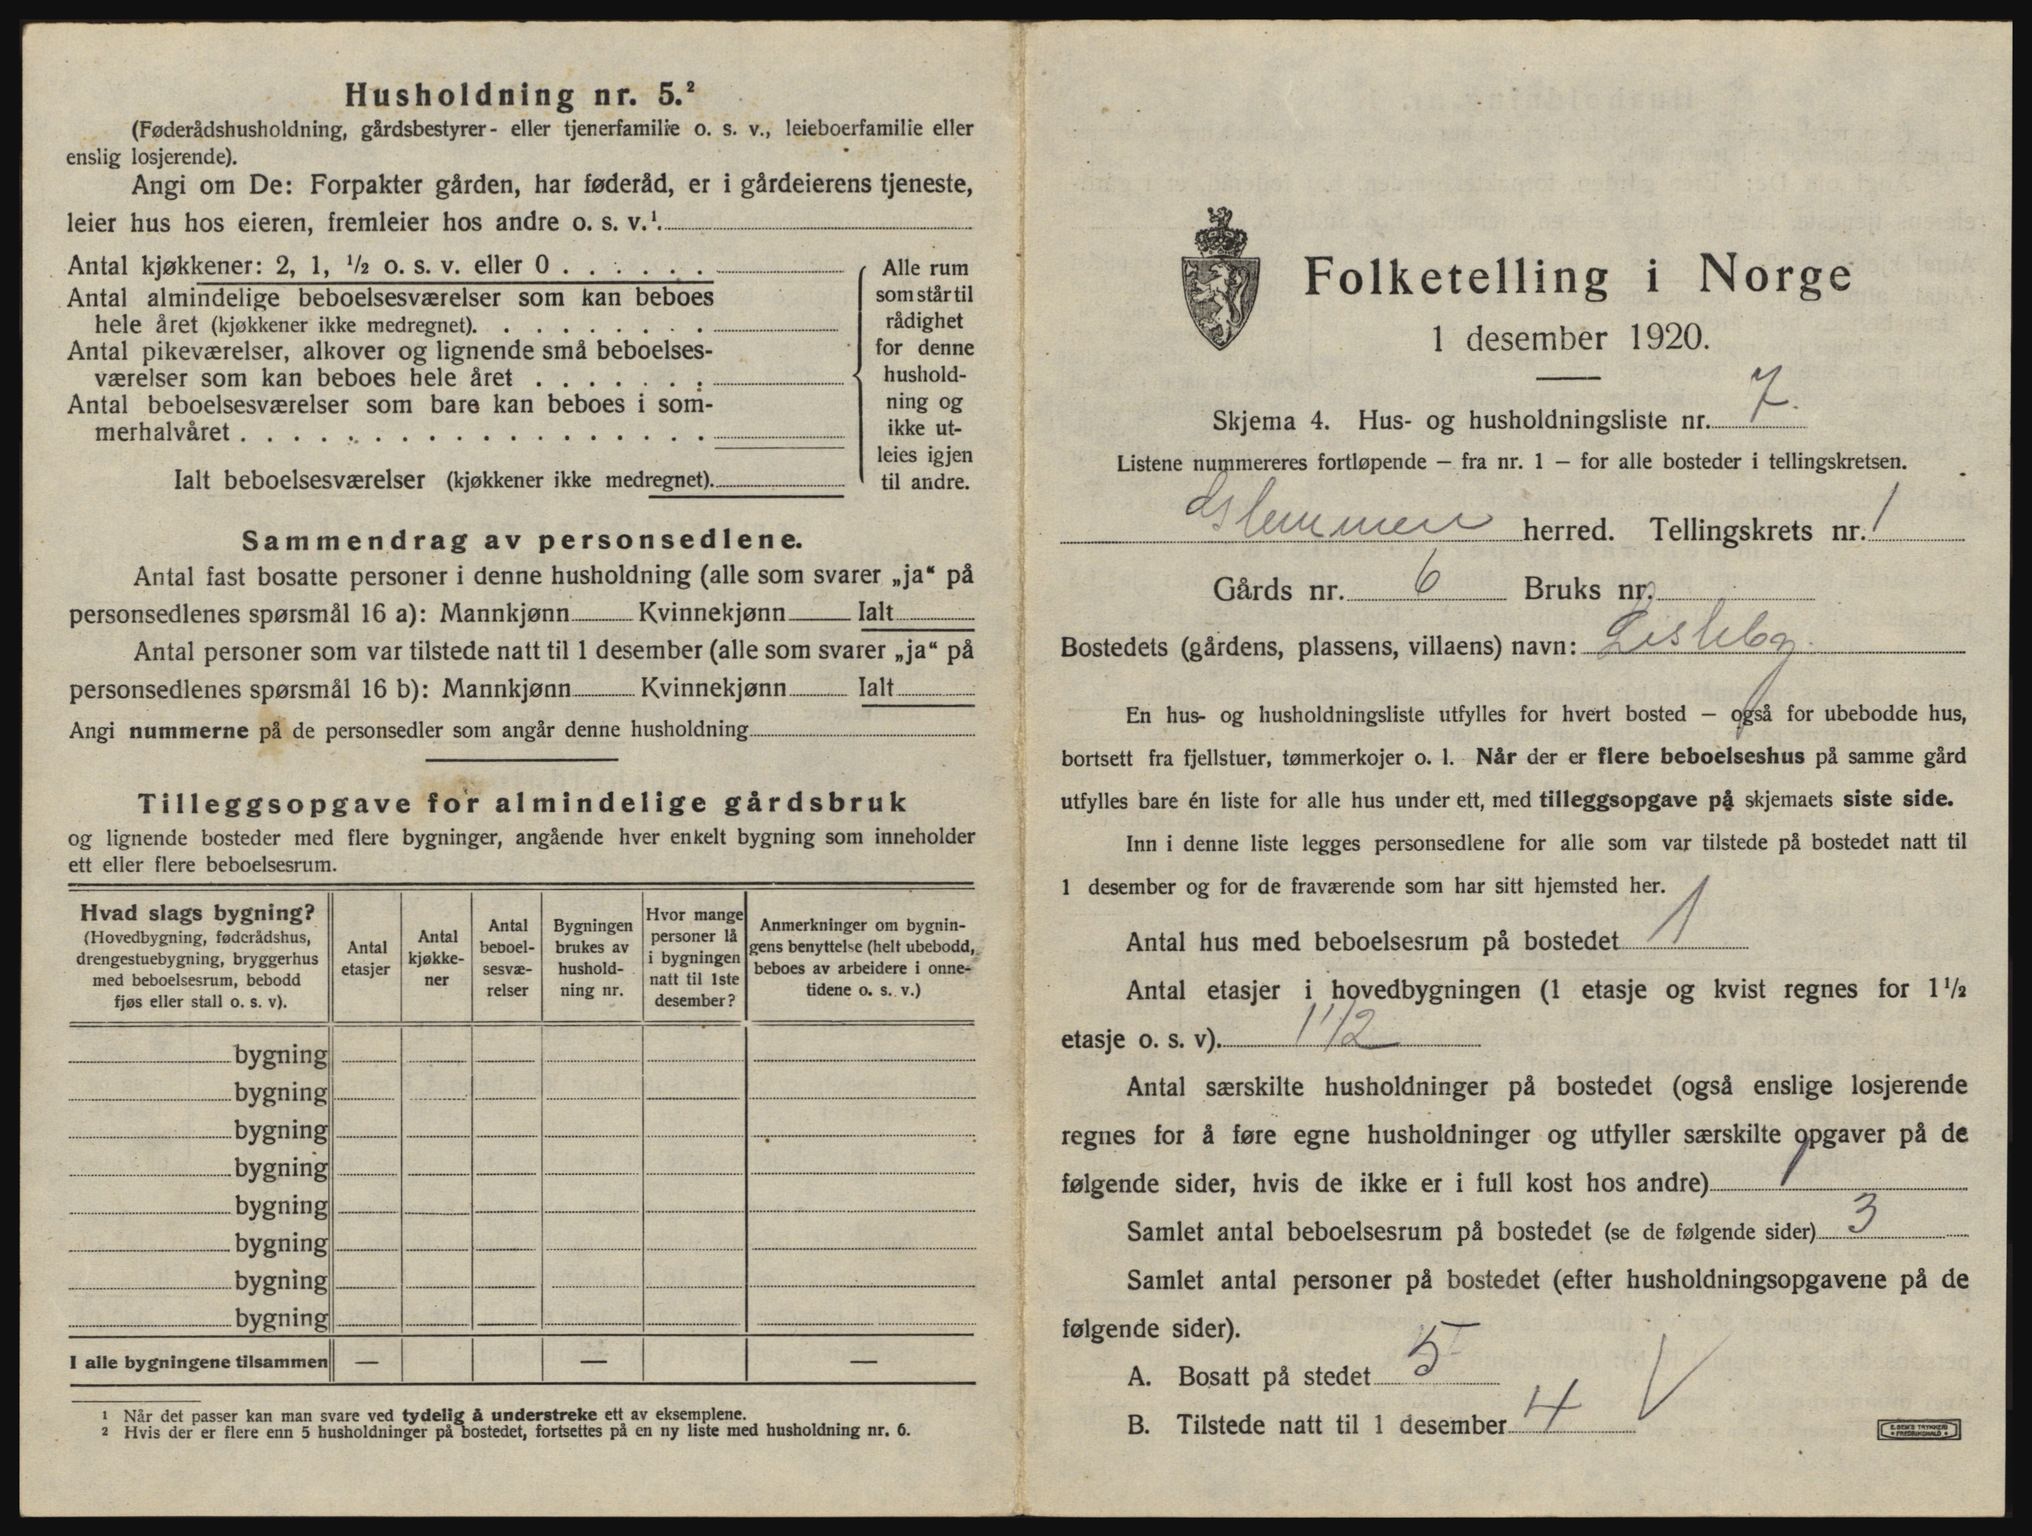 Husholdning nr. 5.²
(Føderådshusholdning, gårdsbestyrer- eller tjenerfamilie o. s. v., leieboerfamilie eller
enslig losjerende).
Angi om De: Forpakter gården, har føderåd, er i gårdeierens tjeneste,
leier hus hos eieren, fremleier hos andre o. s. v.¹.
Antal kjøkkener: 2, 1, ½ o. s. v. eller 0 . . . . . .
Antal almindelige beboelsesværelser som kan beboes
hele året (kjøkkener ikke medregnet). . . . . . . . .
Antal pikeværelser, alkover og lignende små beboelses-
værelser som kan beboes hele året . . . . . . .
Antal beboelsesværelser som bare kan beboes i som-
merhalvåret . . . . . . . . . . . . . . . . . .
Ialt beboelsesværelser (kjøkkener ikke medregnet).
Alle rum
som står til
rådighet
for denne
hushold-
ning og
ikke ut-
leies igjen
til andre.
Sammendrag av personsedlene.
Antal fast bosatte personer i denne husholdning (alle som svarer „ja“ på
personsedlenes spørsmål 16 a): Mannkjønn Kvinnekjønn Ialt
Antal personer som var tilstede natt til 1 desember (alle som svarer „ja“ på
personsedlenes spørsmål 16 b): Mannkjønn Kvinnekjønn Ialt
Angi nummerne på de personsedler som angår denne husholdning
Tilleggsopgave for almindelige gårdsbruk
og lignende bosteder med flere bygninger, angående hver enkelt bygning som inneholder
ett eller flere beboelsesrum.
Hvad slags bygning?
(Hovedbygning, føderådshus,
drengestuebygning, bryggerhus
med beboelsesrum, bebodd
fjøs eller stall o. s. v).
Antal
etasjer
Antal
kjøkke-
ner
Antal
beboel-
sesvæ-
relser
Bygningen
brukes av
hushold-
ning nr.
Hvor mange
personer lå
i bygningen
natt til 1ste
desember?
Anmerkninger om bygnin-
gens benyttelse (helt ubebodd,
beboes av arbeidere i onne-
tidene o. s. v.)
bygning
bygning
bygning
bygning
bygning
bygning
bygning
bygning
I alle bygningene tilsammen — — —
¹ Når det passer kan man svare ved tydelig å understreke ett av eksemplene.
² Hvis der er flere enn 5 husholdninger på bostedet, fortsettes på en ny liste med husholdning nr. 6.
Folketelling i Norge
1 desember 1920.
Skjema 4. Hus- og husholdningsliste nr. 7.
Listene nummereres fortløpende – fra nr. 1 – for alle bosteder i tellingskretsen.
Glemmen herred. Tellingskrets nr. 1
Gårds nr. 6 Bruks nr.
Bostedets (gårdens, plassens, villaens) navn: Lisleby.
En hus- og husholdningsliste utfylles for hvert bosted – også for ubebodde hus,
bortsett fra fjellstuer, tømmerkojer o. l. Når der er flere beboelseshus på samme gård
utfylles bare én liste for alle hus under ett, med tilleggsopgave på skjemaets siste side.
Inn i denne liste legges personsedlene for alle som var tilstede på bostedet natt til
1 desember og for de fraværende som har sitt hjemsted her.
Antal hus med beboelsesrum på bostedet 1
Antal etasjer i hovedbygningen (1 etasje og kvist regnes for 1½
etasje o. s. v). 1 1/2
Antal særskilte husholdninger på bostedet (også enslige losjerende
regnes for å føre egne husholdninger og utfyller særskilte opgaver på de
følgende sider, hvis de ikke er i full kost hos andre) 1
Samlet antal beboelsesrum på bostedet (se de følgende sider) 3
Samlet antal personer på bostedet (efter husholdningsopgavene på de
følgende sider).
A. Bosatt på stedet 5
B. Tilstede natt til 1 desember 4